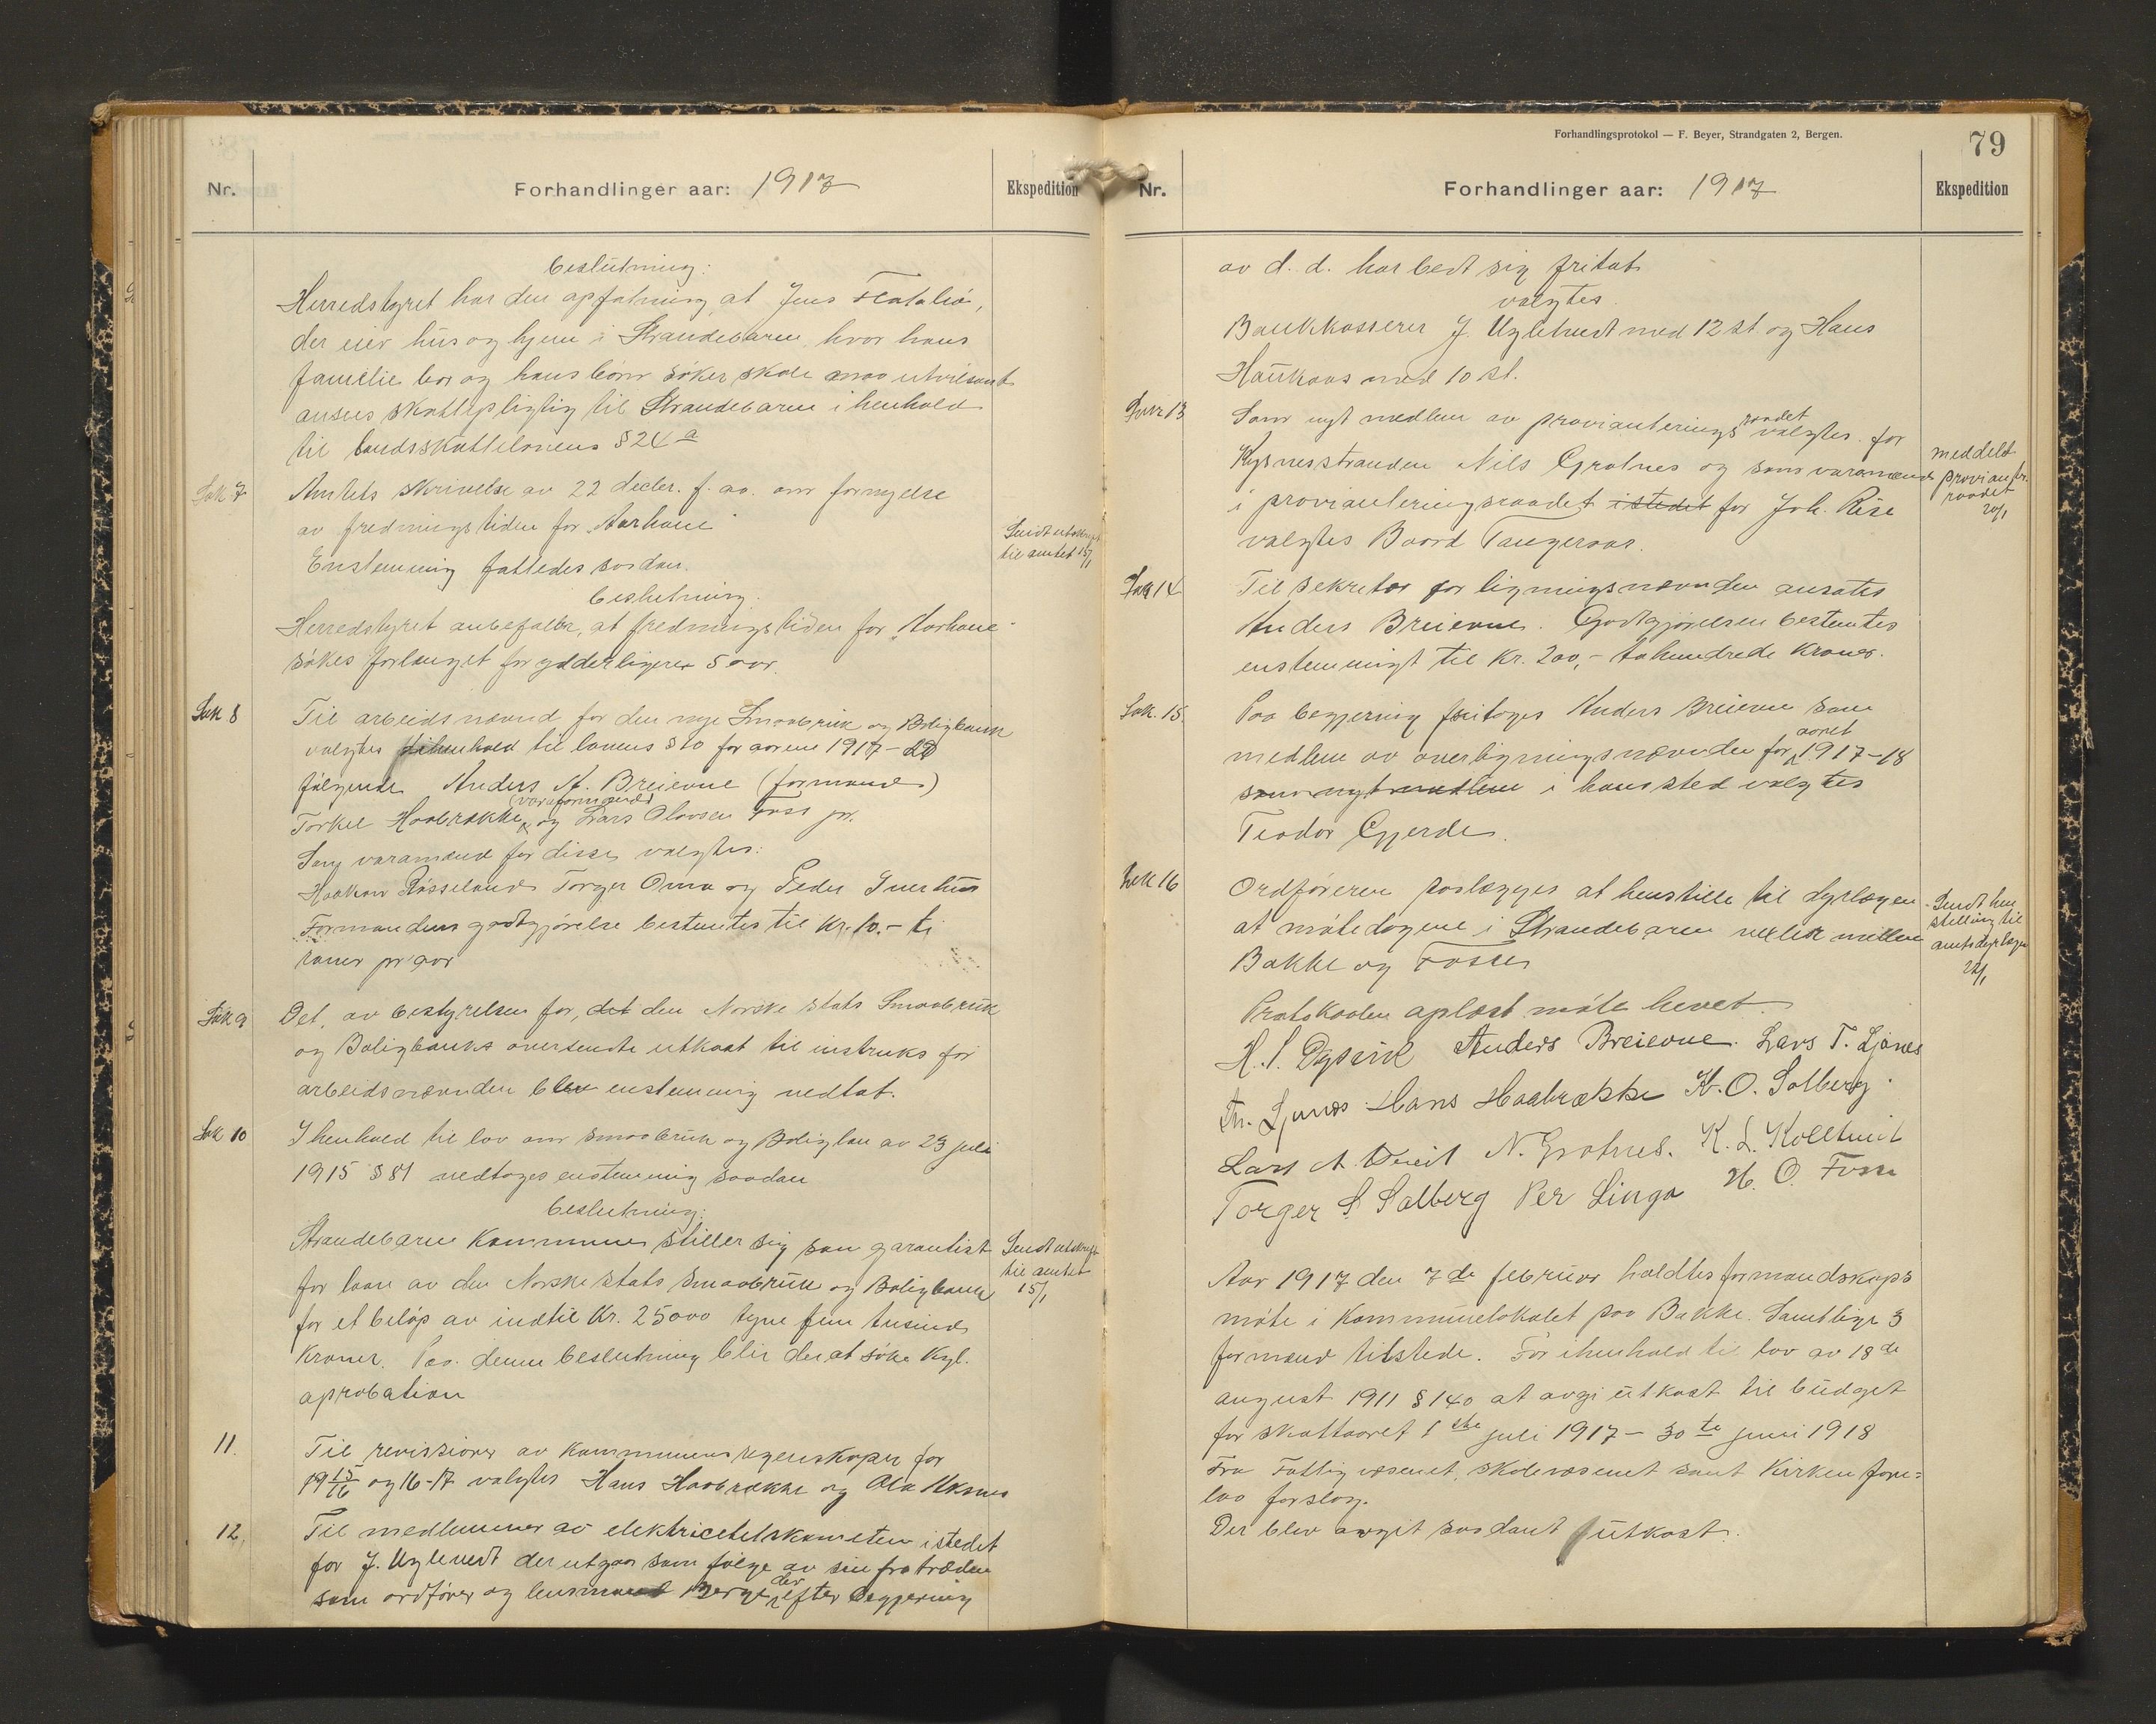 Nr.
Forhandlinger aar: 1917
Ekspedition
beslutning:
Herredstyret har den opfatning at Jens
der eier hus og hjem i Strandebarm, hvor hans
familie bor og hans børn søker skole maa utvilsomt
ansees skattepligtig til Strandebarm i henhold
til landsskattelovens § 24 a
Sak 7
Amtets skrivelse av 22 decbr. f. aa. om fornyelse
av fredningstiden for "Aarhane"
Sendt utskrift
til amtet 15/1
Enstemmig fattedes saadan
beslutning.
Herredstyret anbefaler, at fredningstiden for "Aarhane"
søkes forlænget for ydderligere 5 aar.
Sak 8
Til arbeidsnævnd for den nye Smaabruk og Boligbank
valgtes i henhold til lovens § 10 for aarene 1917-
følgende Anders A. Breievne (formand)
(varaformand)
Torkel Haabrække og Lars Olavsen Foss jr.
Som varamænd for disse valgtes:
Haakon Røsseland Torger Oma og Peder
Formandens godtgjørelse bestemtes til Kr. 10.- ti
kroner pr aar
Sak 9
Det, av bestyrelsen for, det den Norske stats Smaabruk
og Boligbanks oversendte utkast til instruks for
arbeidsnævnden blev enstemmig vedtat.
Sak 10
I henhold til lov om smaabruk og Boliglaan av 23 juli
1915 § 81 vedtoges enstemmig saadan
beslutning:
Strandebarm Kommune stiller sig som garantist
for laan av den Norske stats Smaabruk og Boligbank
for et beløp av indtil Kr. 25000 tyve fem tusind
Kroner. Paa denne beslutning blir der at søke Kgl.
aprobation
Sendt utskrift
til amtet
15/1
11.
Til revissorer av Kommunens regnskaper for
19 15/16 og 16-17 valgtes Hans Haabrække og Ola Aksnes
12,
Til medlemmer av elektricetetskomiteen istedet
for J. Uglehvedt der utgaar som følge av sin fratræden
der
som ordfører og lensmand Berge efter begjæring
Forhandlingsprotokol — F. Beyer, Strandgaten 2, Bergen.
79
Nr.
Forhandlinger aar: 1917
Ekspedition
av d. d. har bedt sig fritat
valgtes.
Bankkasserer J. Uglehvedt med 12 st og Hans
Haukaas med 10 st.
13
raadet
Som nyt medlem av provianterings valgtes for
Kysnesstranden Nils Grotnes og som varamænd
i provianteringsraadet istedet for Joh. Rise
valgtes Baard Tangeraas.
meddelt
proviant.
raadet
20/1
Sak 14
Til sekretær for ligningsnævnden ansattes
Anders Breievne. Godtgjørelsen bestemtes
enstemmigt til Kr. 200,- tohundrede Kroner.
Sak. 15.
Paa begjæring fritoges Anders Breievne som
aaret
medlem av overligningsnævnden for 1917-18
som nyt medlem i hans sted valgtes
Teodor Gjerde.
Sak 16
Ordføreren paalægges at henstille til dyrlægen
at møtedagene i Strandebarm veksler mellem
Bakke og Fosse
Sendt hen
stilling til
amtsdyrlægen
22/1
Protokolen oplæst møte hevet.
H. S. Dysvik Anders Breievne. Lars T. Ljones
Th. Ljones Hans Haabrække K. O. Solberg.
Lars A. Tveit N. Grotnes. K. L. Kolltveit
Torger S. Solberg Per Linga H. O. Fosse
Aar 1917 den 7de februar holdtes formandskaps
møte i Kommunelokalet paa Bakke. Samtlige 3
formænd tilstede. For i henhold til lov av 18de
august 1911 § 140 at avgi utkast til budget
for skattaaret 1ste juli 1917 - 30te juni 1918
Fra Fattigvæsenet, skolevæsenet samt Kirken fore=
laa forslag.
Der blev avgit saadant utkast.